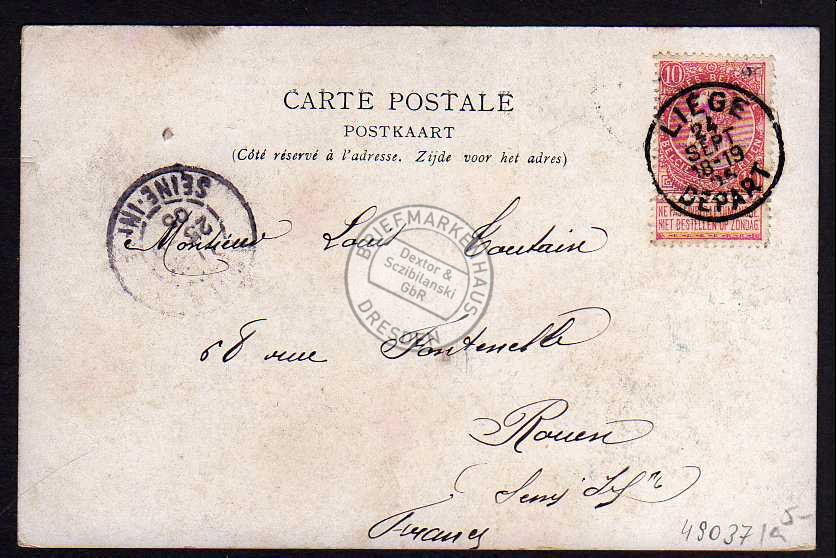 CARTE POSTALE
POSTKAART
(Côté réservé à l'adresse. Zijde voor het adres)
10
LIEGE
24
SEPT
18-19
DEPART
NIET BESTELLEN OP ZONDAG
SEINE-INF
BRIEFMARKENHAUS
Dextor &
Sczibilanski
GbR
DRESDEN
Monsieur Louis Coutain
68 rue Fontenelle
Rouen
Seine Infre
France
5-
49037/a